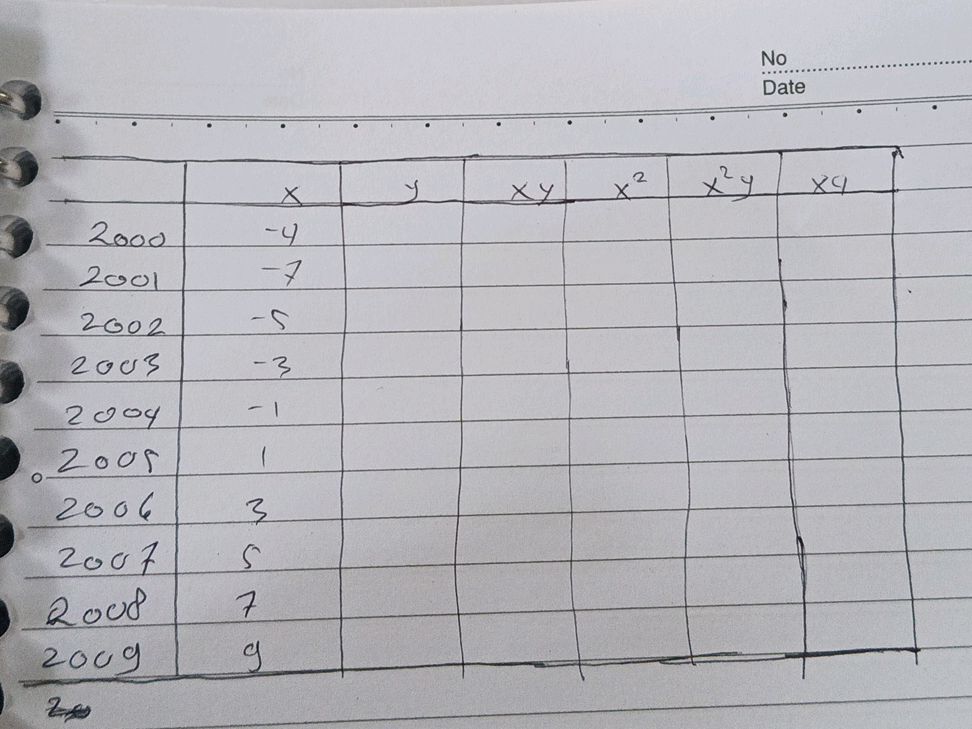 No
Date
x y xy x² x²y x4
2000 -4
2001 -7
2002 -5
2003 -3
2004 -1
2005 1
2006 3
2007 5
2008 7
2009 9